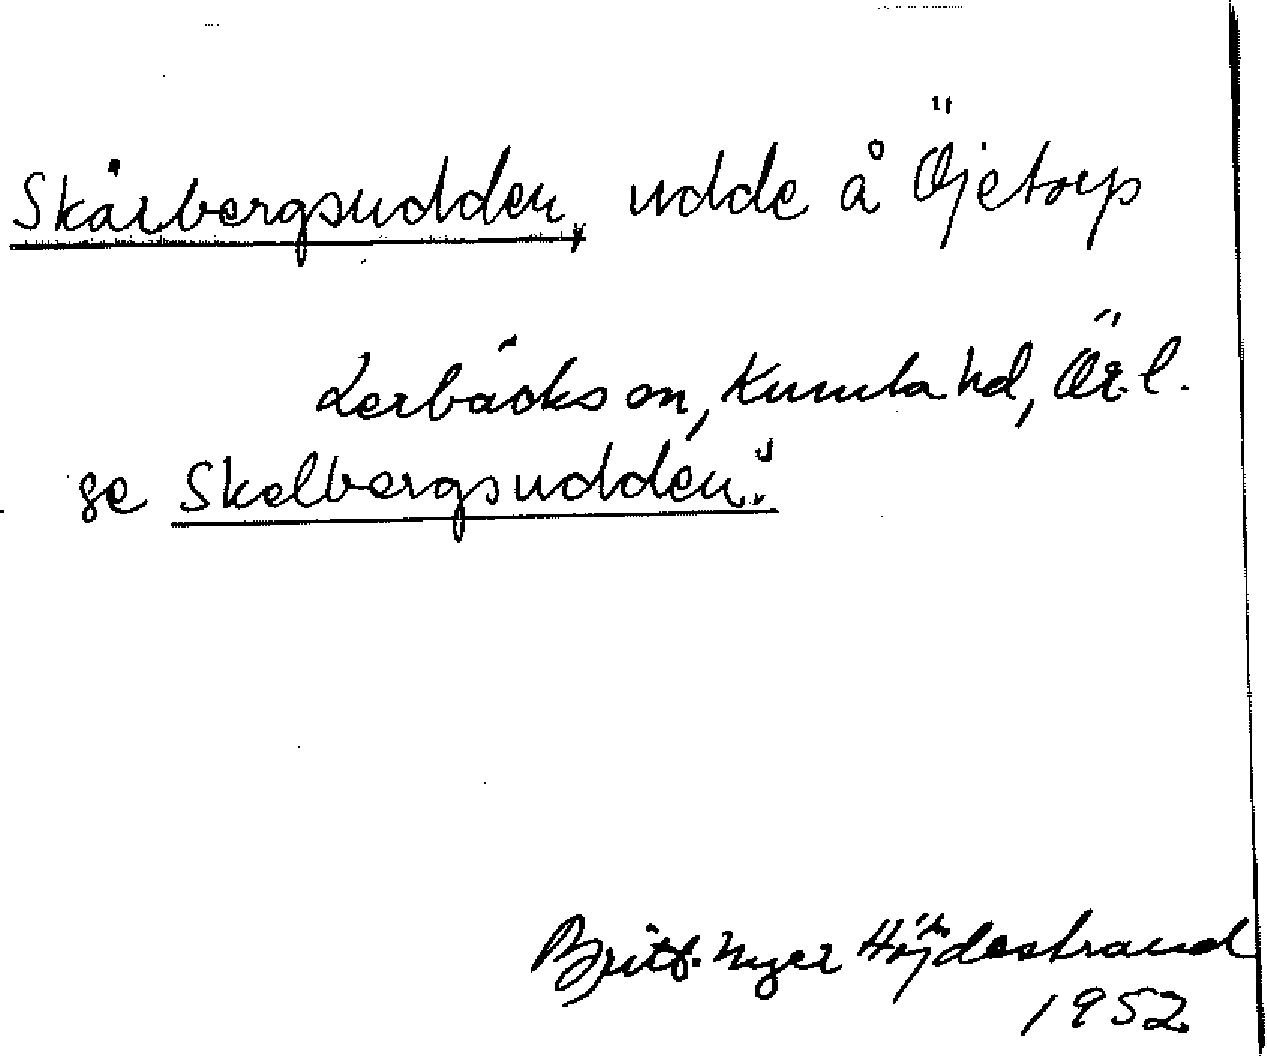 Skårbergsudden, udde å Öjetorp
Lerbäcks sn, Kumla hd, Ör. l.
se Skelbergsudden.
Höjdestrand
1952